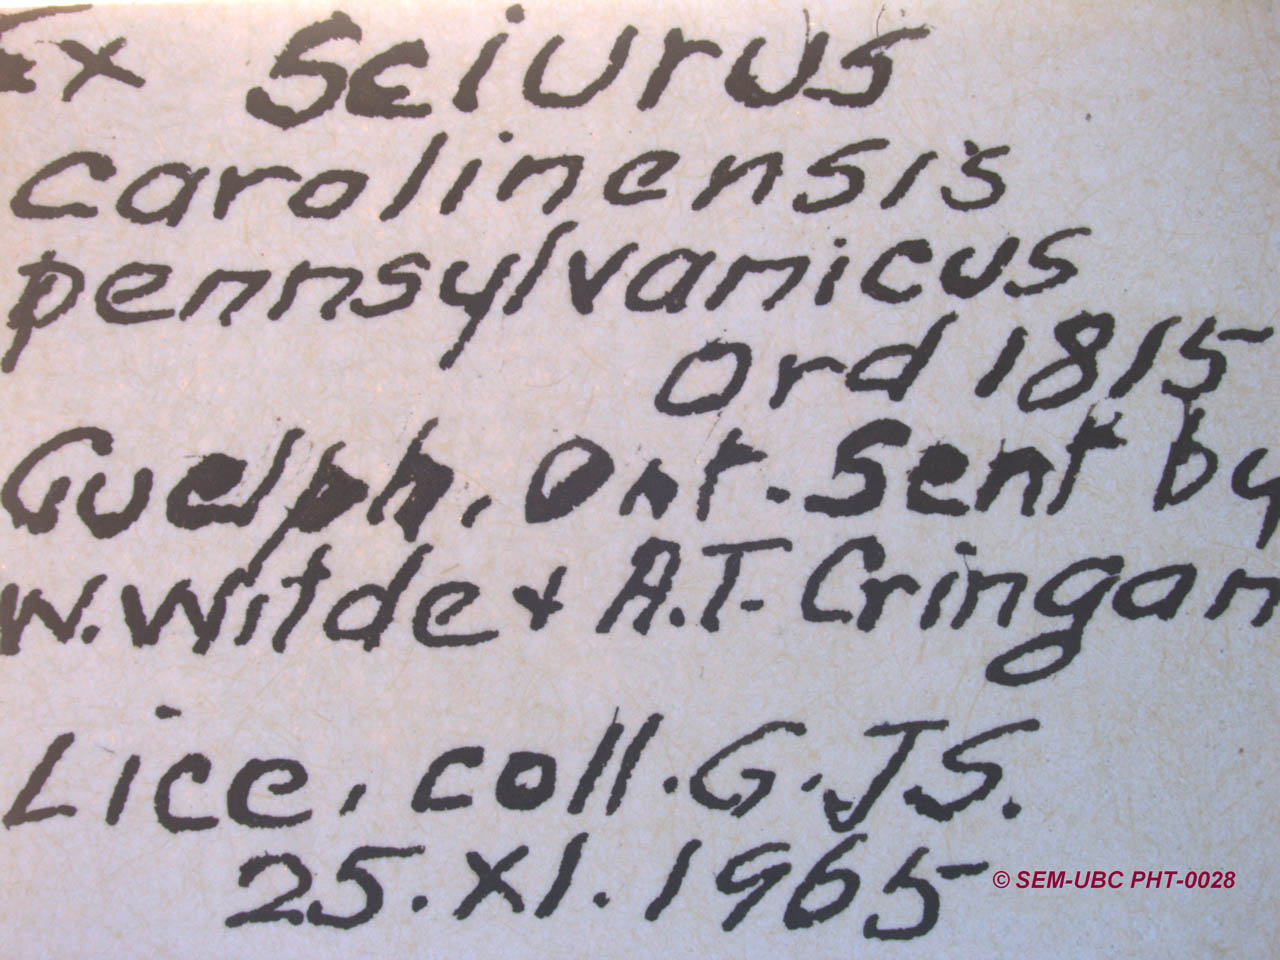 Ex Sciurus
carolinensis
pennsylvanicus
Ord 1815
Guelph, Ont. Sent by
W. Wilde & A.T. Cringan
Lice, coll. G.J.S.
25.XI.1965
© SEM-UBC PHT-0028